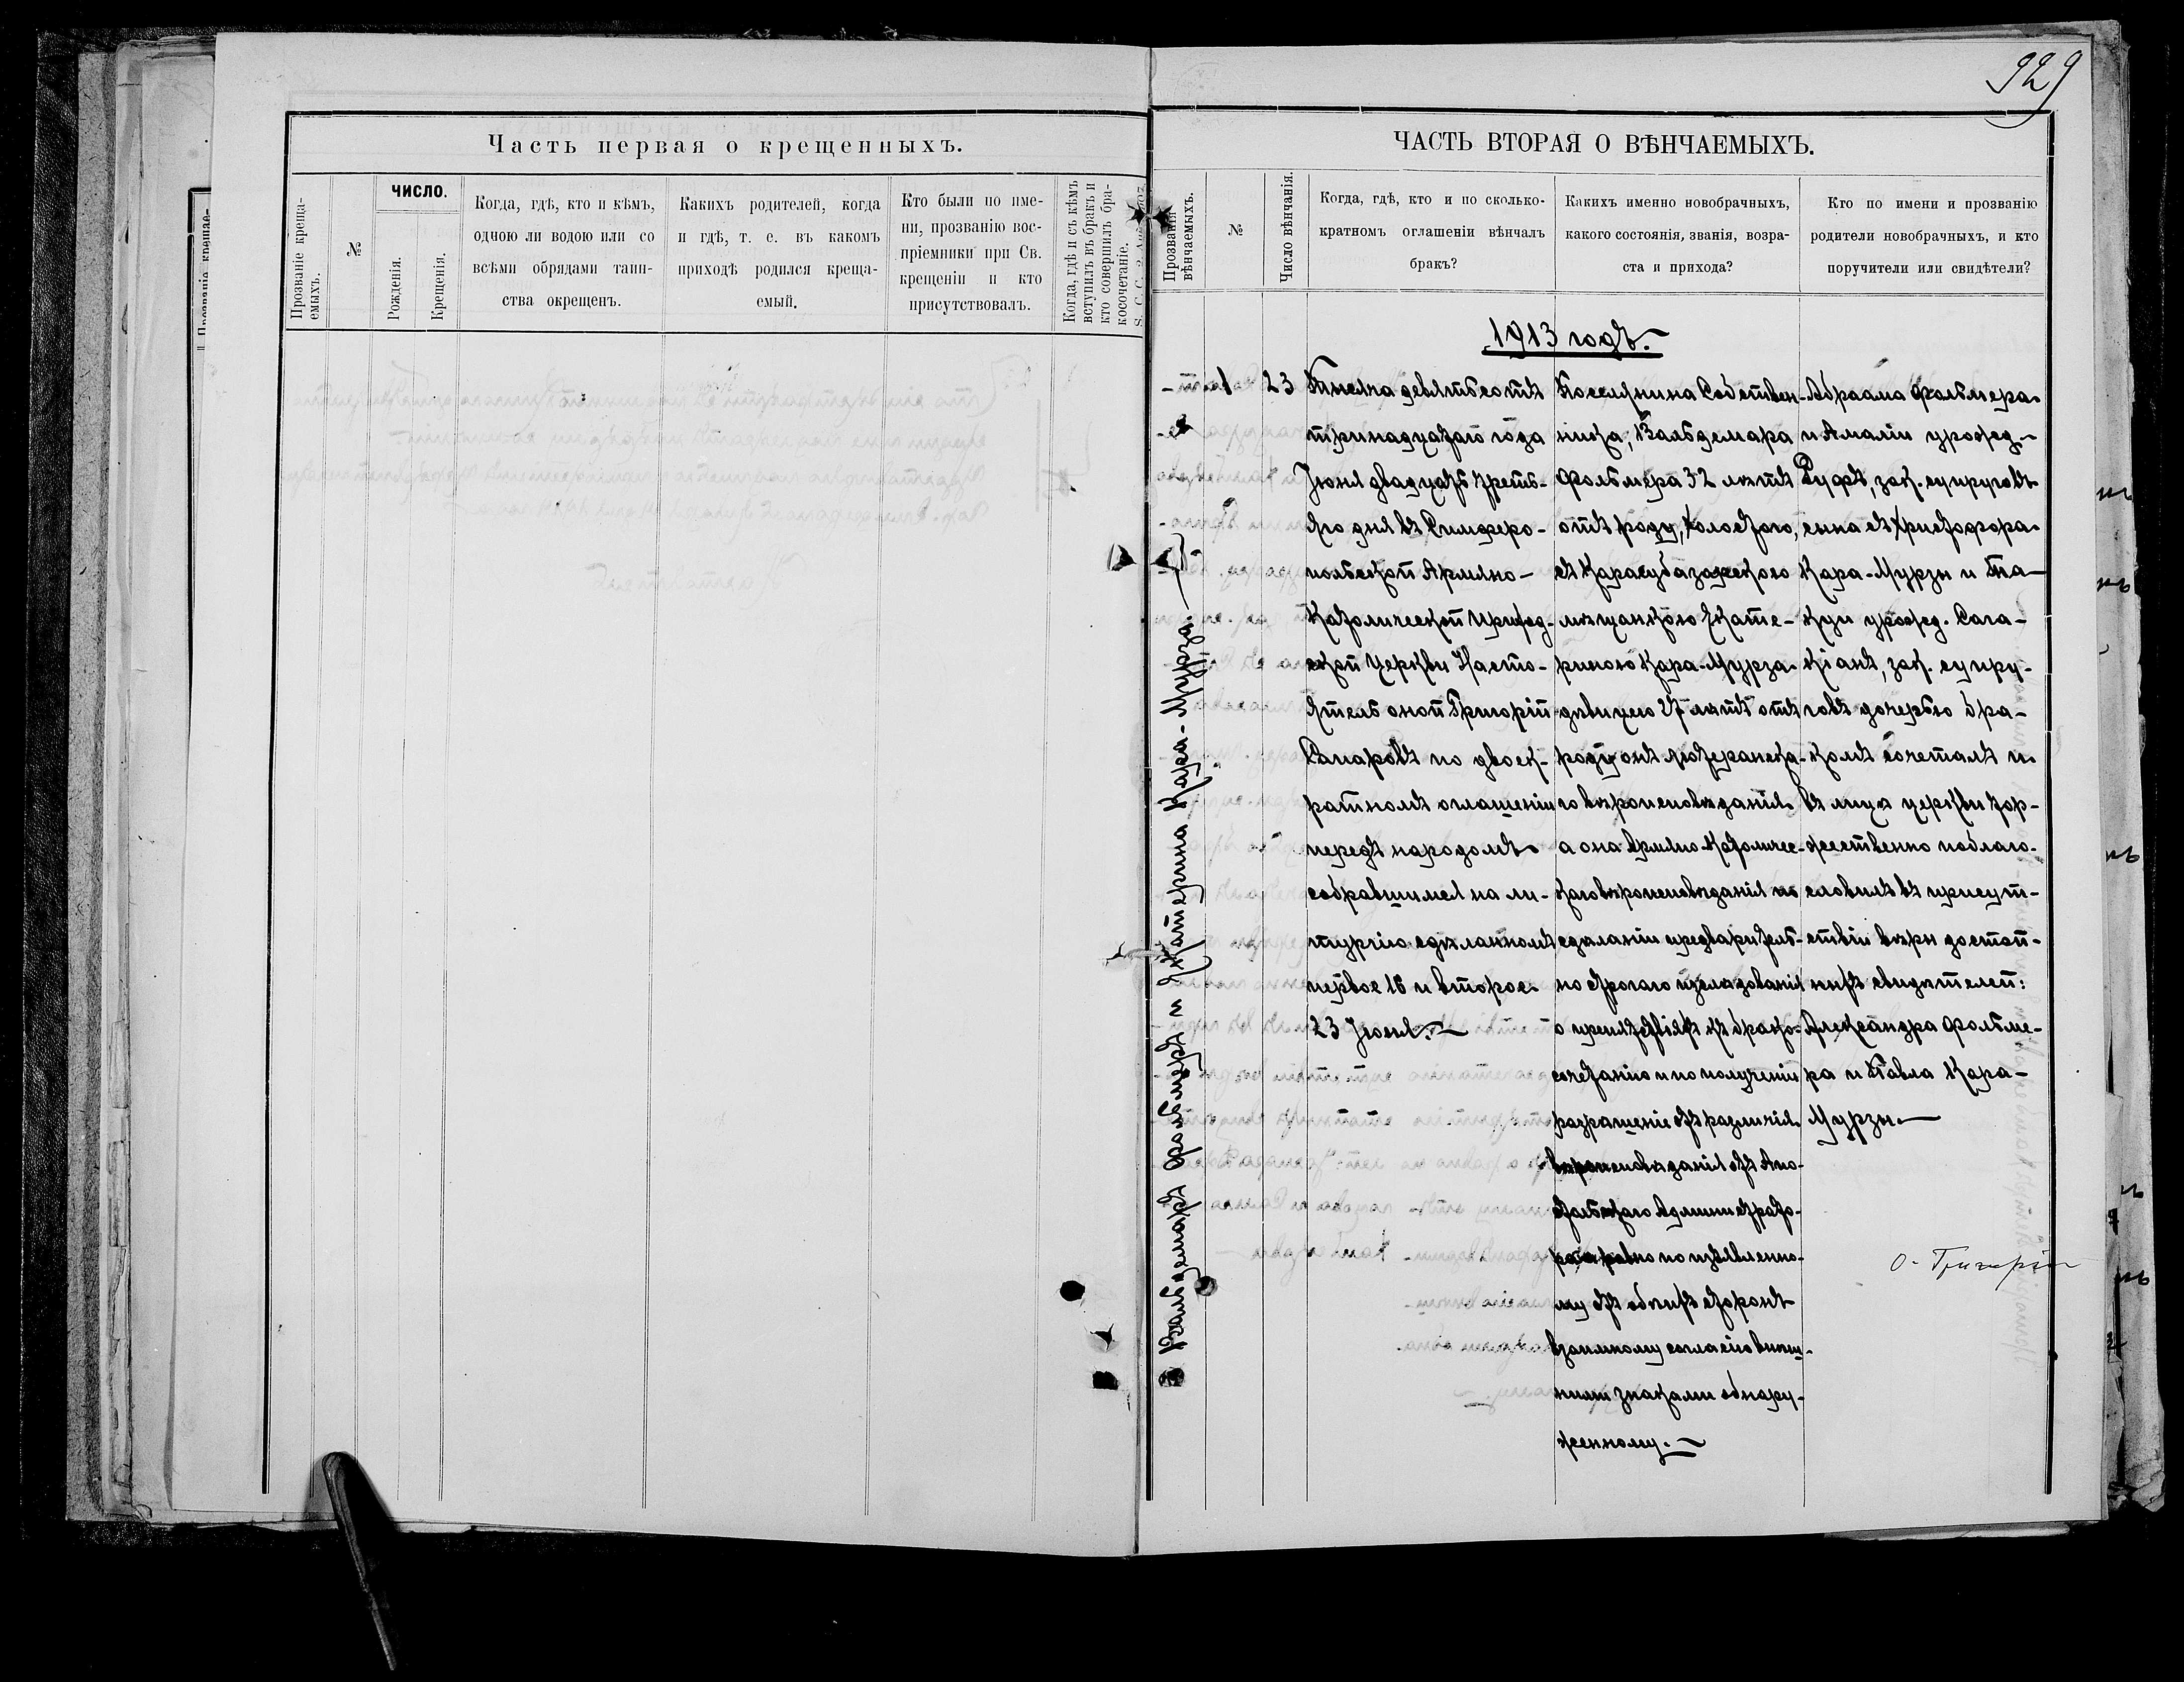 929
Часть первая о крещенныхъ.
Прозваніе крещаемыхъ.
№
ЧИСЛО.
Рожденія.
Крещенія.
Когда, гдѣ, кто и кѣмъ,
одною ли водою или со
всѣми обрядами таин-
ства окрещенъ.
Какихъ родителей, когда
и гдѣ, т. е. въ какомъ
приходѣ родился креща-
емый.
Кто были по име-
ни, прозванію вос-
пріемники при Св.
крещеніи и кто
присутствовалъ.
Когда, гдѣ и съ кѣмъ
вступилъ въ бракъ и
кто совершилъ бра-
косочетаніе.
ЧАСТЬ ВТОРАЯ О ВѢНЧАЕМЫХЪ.
Прозванія
вѣнчаемыхъ.
№
Число вѣнчанія.
Когда, гдѣ, кто и по сколько-
кратномъ оглашеніи вѣнчалъ
бракъ?
Какихъ именно новобрачныхъ,
какого состоянія, званія, возра-
ста и прихода?
Кто по имени и прозванію
родители новобрачныхъ, и кто
поручители или свидѣтели?
1913 годъ.
Вальдемаръ Фольмеръ и Екатерина Кара-Мурза.
1
23
Тысяча девятьсотъ
тринадцатаго года
Іюня двадцать треть-
яго дня въ Симферо-
польской Армяно-
Католической Приход-
ской Церкви Насто-
ятель оной Григорій
Сапаровъ по двоек-
ратномъ оглашеніи
передъ народомъ
собравшимся на ли-
тургію сдѣланномъ
первое 16 и второе
23 Іюня.
Поселянина Собствен-
ника, Вальдемара
Фольмера 32 лѣтъ
отъ роду, холостого,
съ Карасубазарскою
мѣщанкою Екате-
риною Кара-Мурза
дѣвицею 27 лѣтъ отъ
роду онъ лютеранска-
го вѣроисповѣданія
а она Армяно-Католичес-
каго вѣроисповѣданія по
сдѣланіи предваритель-
но строгаго изслѣдованія
о препятствіяхъ къ брако-
сочетанію и по полученіи
разрѣшеніе отъ различія
вѣроисповѣданія отъ Апо-
стольскаго Администрато-
ра и равно по изъявленно-
му отъ обоихъ сторонъ
взаимному согласію внѣш-
ними знаками обнару-
женному.
Абраама Фольмера
и Амаліи урожд.
Руфъ, зак. супруговъ
сына съ Христофора
Кара-Мурзы и Та-
куи урожд. Сага-
кіанъ, зак. супру-
говъ дочерью бра-
комъ сочеталъ и
въ лицѣ церкви тор-
жественно поблаго-
словилъ въ присут-
ствіи вѣры достой-
ныхъ свидѣтелей:
Александра Фольме-
ра и Павла Кара-
Мурзы.
О. Григорій